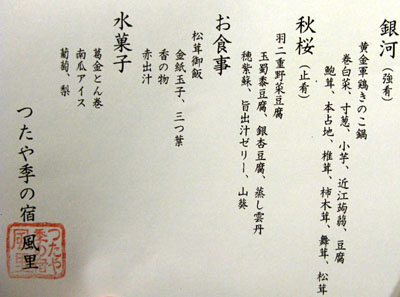 銀河（強肴）
黄金軍鶏きのこ鍋
巻白菜、寸葱、小芋、近江蒟蒻、豆腐
鮑茸、本占地、椎茸、柿木茸、舞茸、松茸
秋桜（止肴）
羽二重野菜豆腐
玉蜀黍豆腐、銀杏豆腐、蒸し雲丹
穂紫蘇、旨出汁ゼリー、山葵
お食事
松茸御飯
金紙玉子、三つ葉
香の物
赤出汁
水菓子
葛金とん巻
南瓜アイス
葡萄、梨
つたや季の宿 風里
つたや
季の宿
風里